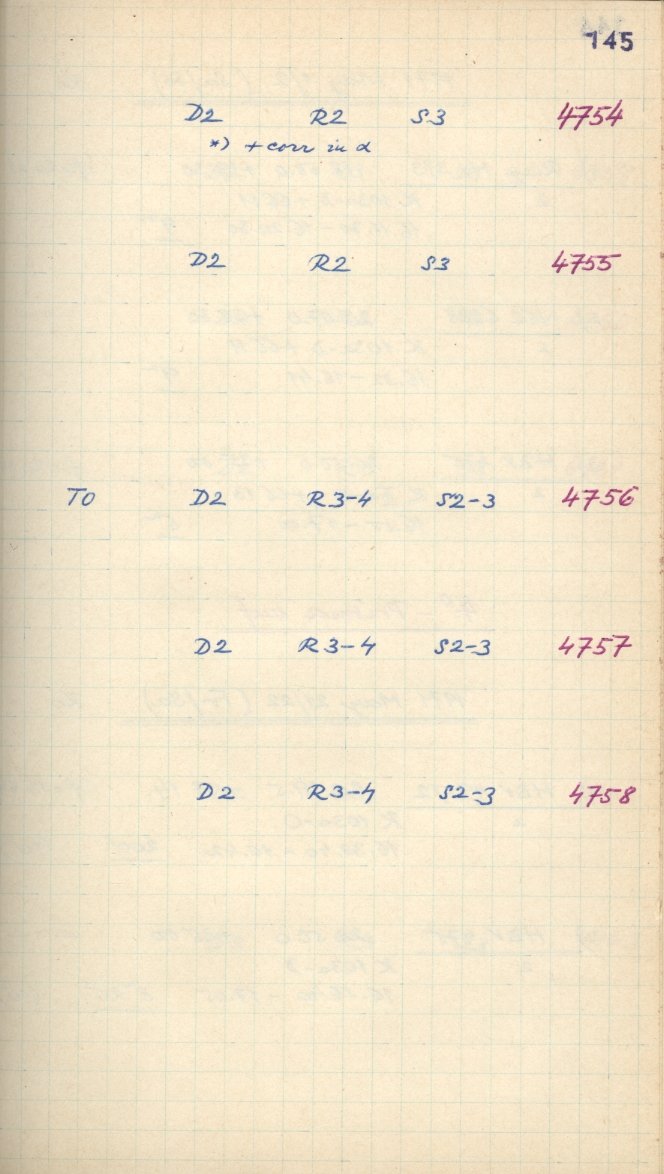 145
D2 R2 S3 4754
*) + corr in α
D2 R2 S3 4755
TO D2 R3-4 S2-3 4756
D2 R3-4 S2-3 4757
D2 R3-4 S2-3 4758